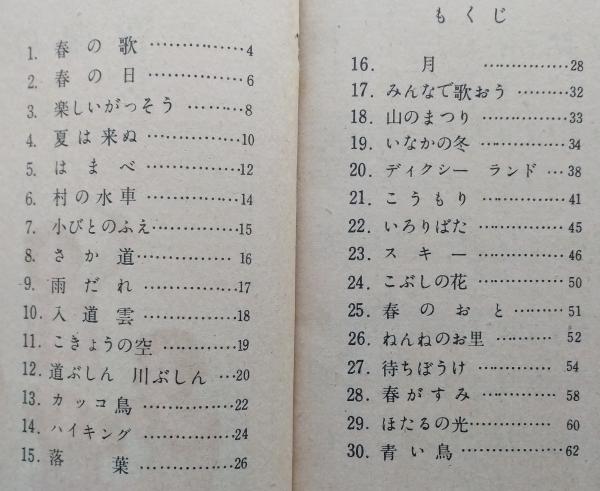 1. 春の歌 ……………4
2. 春の日 ……………6
3. 楽しいがっそう ………8
4. 夏は来ぬ ……………10
5. はまべ ……………12
6. 村の水車 ……………14
7. 小びとのふえ……………15
8. さか道…………… 16
9. 雨だれ ……………17
10. 入道雲 ……………18
11. こきょうの空 …………19
12. 道ぶしん 川ぶしん …20
13. カッコ鳥 ……………22
14. ハイキング …………24
15. 落葉 ……………26
もくじ
16. 月 ……………28
17. みんなで歌おう …………32
18. 山のまつり …………33
19. いなかの冬 …………34
20. ディクシー ランド …38
21. こうもり …………41
22. いろりばた …………45
23. スキー …………46
24. こぶしの花 …………50
25. 春のおと …………51
26. ねんねのお里 ………… 52
27. 待ちぼうけ ………… 54
28. 春がすみ ………… 58
29. ほたるの光………… 60
30. 青い鳥 ……………62